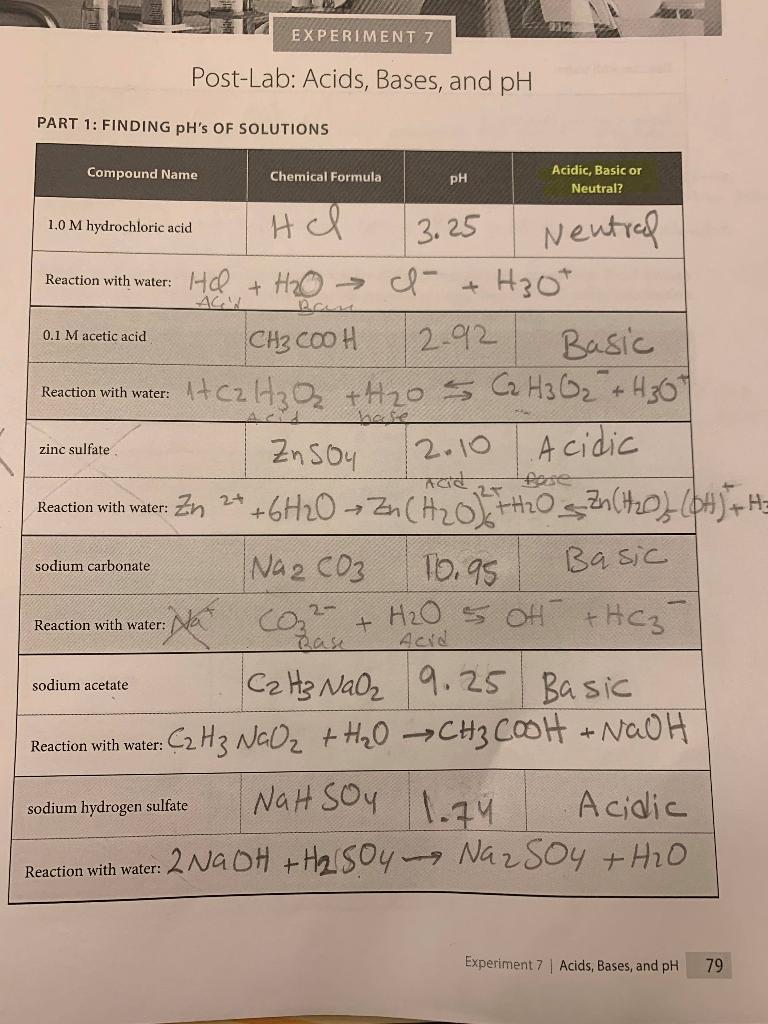 EXPERIMENT 7
Post-Lab: Acids, Bases, and pH
PART 1: FINDING pH's OF SOLUTIONS
Compound Name Chemical Formula pH Acidic, Basic or Neutral?
1.0 M hydrochloric acid HCl 3.25 Neutral
Reaction with water: HCl + H2O → Cl⁻ + H3O⁺
Acid Base
0.1 M acetic acid CH3COOH 2.92 Basic
Reaction with water: HC2H3O2 + H2O ⇆ C2H3O2⁻ + H3O⁺
Acid base
zinc sulfate ZnSO4 2.10 Acidic
Acid Base
Reaction with water: Zn²⁺ + 6H2O → Zn(H2O)6²⁺ + H2O ⇆ Zn(H2O)5(OH)⁺ + H3
sodium carbonate Na2CO3 10.95 Basic
Reaction with water: Na⁺ CO3²⁻ + H2O ⇆ OH⁻ + HC3⁻
Base Acid
sodium acetate C2H3NaO2 9.25 Basic
Reaction with water: C2H3NaO2 + H2O → CH3COOH + NaOH
sodium hydrogen sulfate NaHSO4 1.74 Acidic
Reaction with water: 2NaOH + H2SO4 → Na2SO4 + H2O
Experiment 7 | Acids, Bases, and pH 79